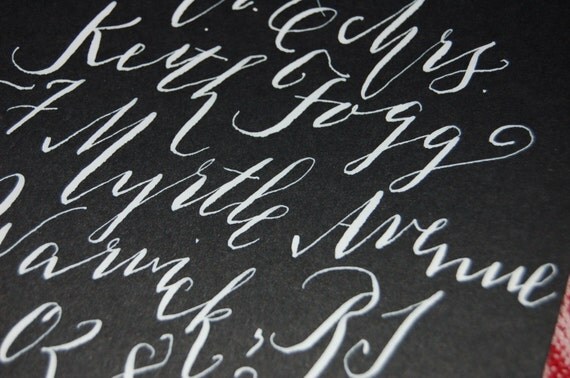 & Mrs.
Keith Fogg
7 Myrtle Avenue
Warwick, RI
028